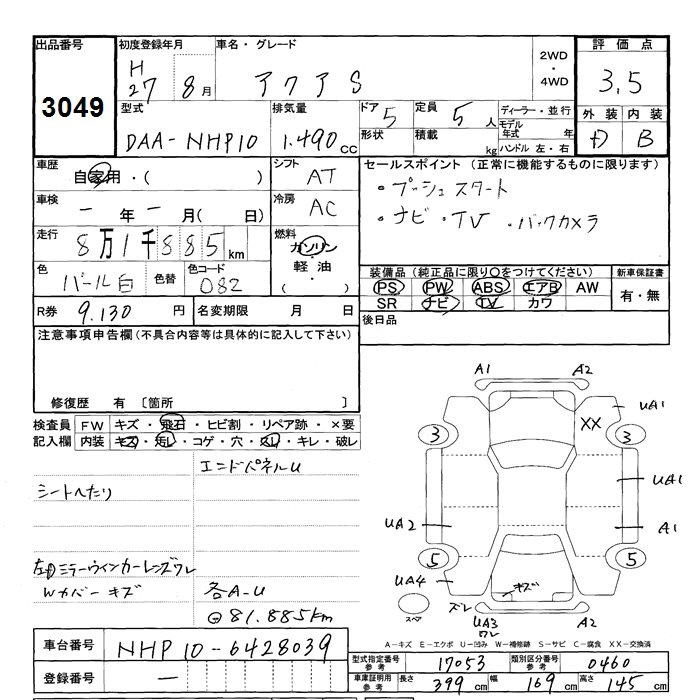 出品番号 初度登録年月 車名・グレード 2WD・4WD 評価点
3049 H27 8月 アクアS 3.5
型式 排気量 ドア 5 定員 5人 ディーラー・並行 外装 内装
DAA-NHP10 1.490cc 形状 積載 kg モデル年式 年 ハンドル 左・右 B
車歴 自家用・( ) シフト AT セールスポイント (正常に機能するものに限ります)
・プッシュスタート
車検 ー年ー月(日) 冷房 AC ・ナビ・TV・バックカメラ
走行 8万1千885km 燃料 ガソリン・軽油・( )
色 パール白 色替 色コード 082 装備品 (純正品に限り○をつけてください) 新車保証書
PS PW ABS エアB AW 有・無
SR ナビ TV カワ
R券 9.130円 名変期限 月 日 後日品
注意事項申告欄 (不具合内容等は具体的に記入して下さい)
修復歴 有 〔箇所 〕
検査員記入欄 FW キズ・飛石・ヒビ割・リペア跡・×要
内装 キズ・汚レ・コゲ・穴・スレ・キレ・破レ
エンドパネルU
シートヘたり
ミラーウィンカーレンズワレ
Wカバーキズ 各A-U
81.885km
A1 A2
XX UA1
3 3
UA1
UA2 A1
5 5
UA4 キズ
スペア ズレ UA3 ワレ A2
A-キズ E-エクボ U-凹み W-補修跡 S-サビ C-腐食 XX-交換済
車台番号 NHP10-6428039
登録番号 ー
型式指定番号 参考 17053 類別区分番号 参考 0460
車庫証明用 参考 長さ 399cm 幅 169cm 高さ 145cm